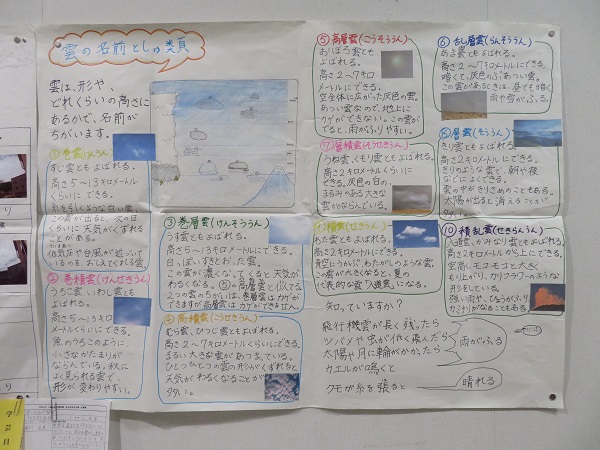 雲の名前としゅ類
雲は、形や、
どれくらいの高さに
あるかで、名前が
ちがいます。
①巻雲(けんうん)
すじ雲ともよばれる。
高さ5〜13キロメートル
くらいにできる。
この雲が出ると、次の日
くらいに天気がくずれる
ことがある。
低気圧や台風が近づいて
いるのを、教えてくれる雲。
②巻積雲(けんせきうん)
うろこ雲、いわし雲とも
よばれる。
高さ5〜13キロ
メートルくらいにできる。
魚のうろこのように、
小さなかたまりが
ならんでいる。秋に
よく見られる雲で、
形が変わりやすい。
③巻層雲(けんそううん)
うす雲ともよばれる。
高さ5〜13キロメートルにできる。
白っぽいすきとおった雲。
この雲が濃くなってくると天気が
わるくなる。⑤の高層雲と似てる
2つの雲のちがいは、巻層雲はカゲが
できますが高層雲はカゲができません。
④高積雲(こうせきうん)
むら雲、ひつじ雲ともよばれる。
高さ2〜7キロメートルくらいにできる。
まるい大きな雲があつまっている。
ひとつひとつの雲の形がくずれると
天気がわるくなることが
多い。
⑤高層雲(こうそううん)
おぼろ雲とも
よばれる。
高さ2〜7キロ
メートルにできる。
空全体に広がった灰色の雲。
あつい雲なので、地上に
カゲができない。この雲が
でると、雨がふりやすい。
⑥乱し雲(らんそううん)
あま雲ともよばれる。
高さ2〜7キロメートルにできる。
暗くて、灰色のぶあつい雲。
この雲があるときは、昼でも暗く
雨や雪がふる。
⑦層積雲(そうせきうん)
うね雲、くもり雲ともよばれる。
高さ2キロメートルくらいに
できる。灰色の白の、
まるみのある大きな
雲がならんでいる。
⑧層雲(そううん)
きり雲ともよばれる。
高さ2キロメートルにできる。
きりのような雲で、朝や夜
などによくできる。
雲の中がきりさめのこともある。
太陽が出ると消えることが
多い。
⑨積雲(せきうん)
わた雲ともよばれる。
高さ2キロメートルくらいにできる。
青空にうかぶ、わたがしのような雲。
この雲が大きくなると、夏の
代表的な雲「入道雲」になる。
⑩積乱雲(せきらんうん)
入道雲、かみなり雲ともよばれる。
高さ2キロメートルから上にできる。
空高いモコモコと大きく
もり上がり、カリフラワーのような
形をしている。
強い雨や、ひょうがふり、
カミナリがなることもある。
知っていますか?
飛行機雲が長く残ったら
ツバメや虫が低く飛んだら
太陽や月に輪がかかったら
カエルが鳴くと
雨がふる
クモが糸を張ると
晴れる
学芸員